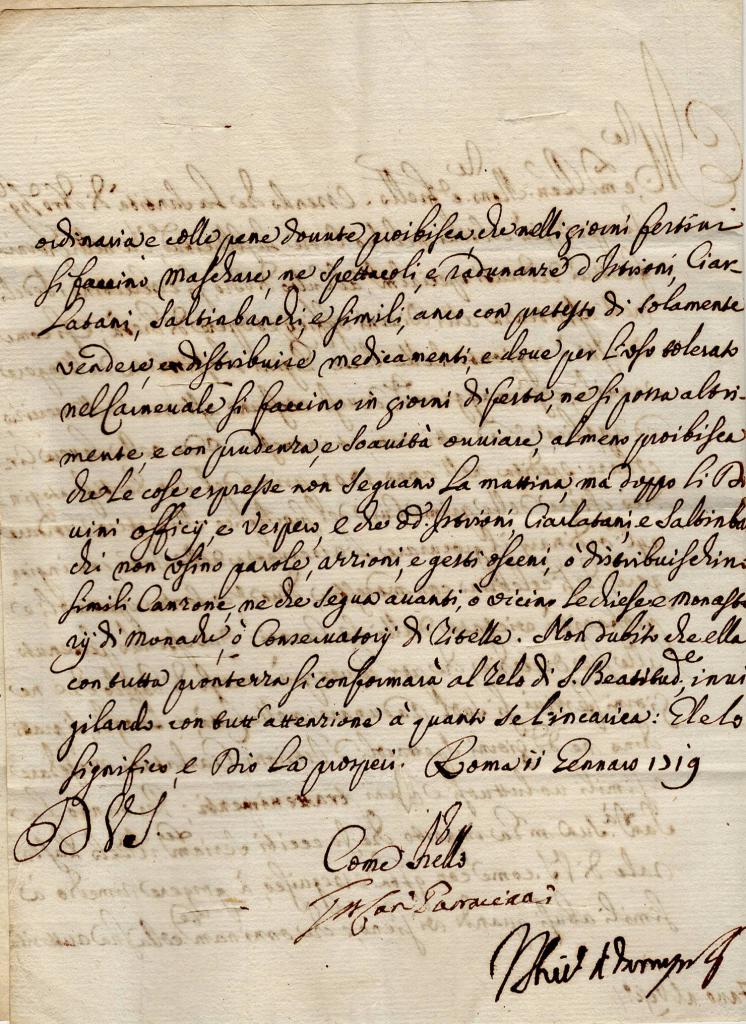 ordinaria e colle pene douute proibisca, che nelli giorni festiui
si faccino Maschare, ne spettacoli, e radunanze d'Istrioni, Ciar-
latani, Saltinbanchi, e simili, anco con pretesto di solamente
vendere, e distribuire medicamenti, e doue per l'uso tolerato
nel Carneuale si faccino in giorni di festa, ne si possa altri-
mente, e con prudenza, e soauità ouuiare, almeno proibisca
che le cose espresse non seguano la mattina, ma doppo li Di
uini officij, e Vespero, e che dd.i Istrioni, Ciarlatani, e Saltinba
chi non usino parole, azzioni, e gesti osceni, ò distribuischino
simili Canzone, ne che segua auanti, ò vicino le chiese, e Monast
rij di Monache, ò Conseruatorij di Zitelle. Non dubito che ella
con tutta prontezza si conformarà al zelo di S. Beatitud.e, inui
gilando con tutt'attenzione à quanto se l'incarica: E le lo
significo, e Dio la prosperi. Roma 11 Gennaro 1719
D V S.
Come Frello
Card Paracciani